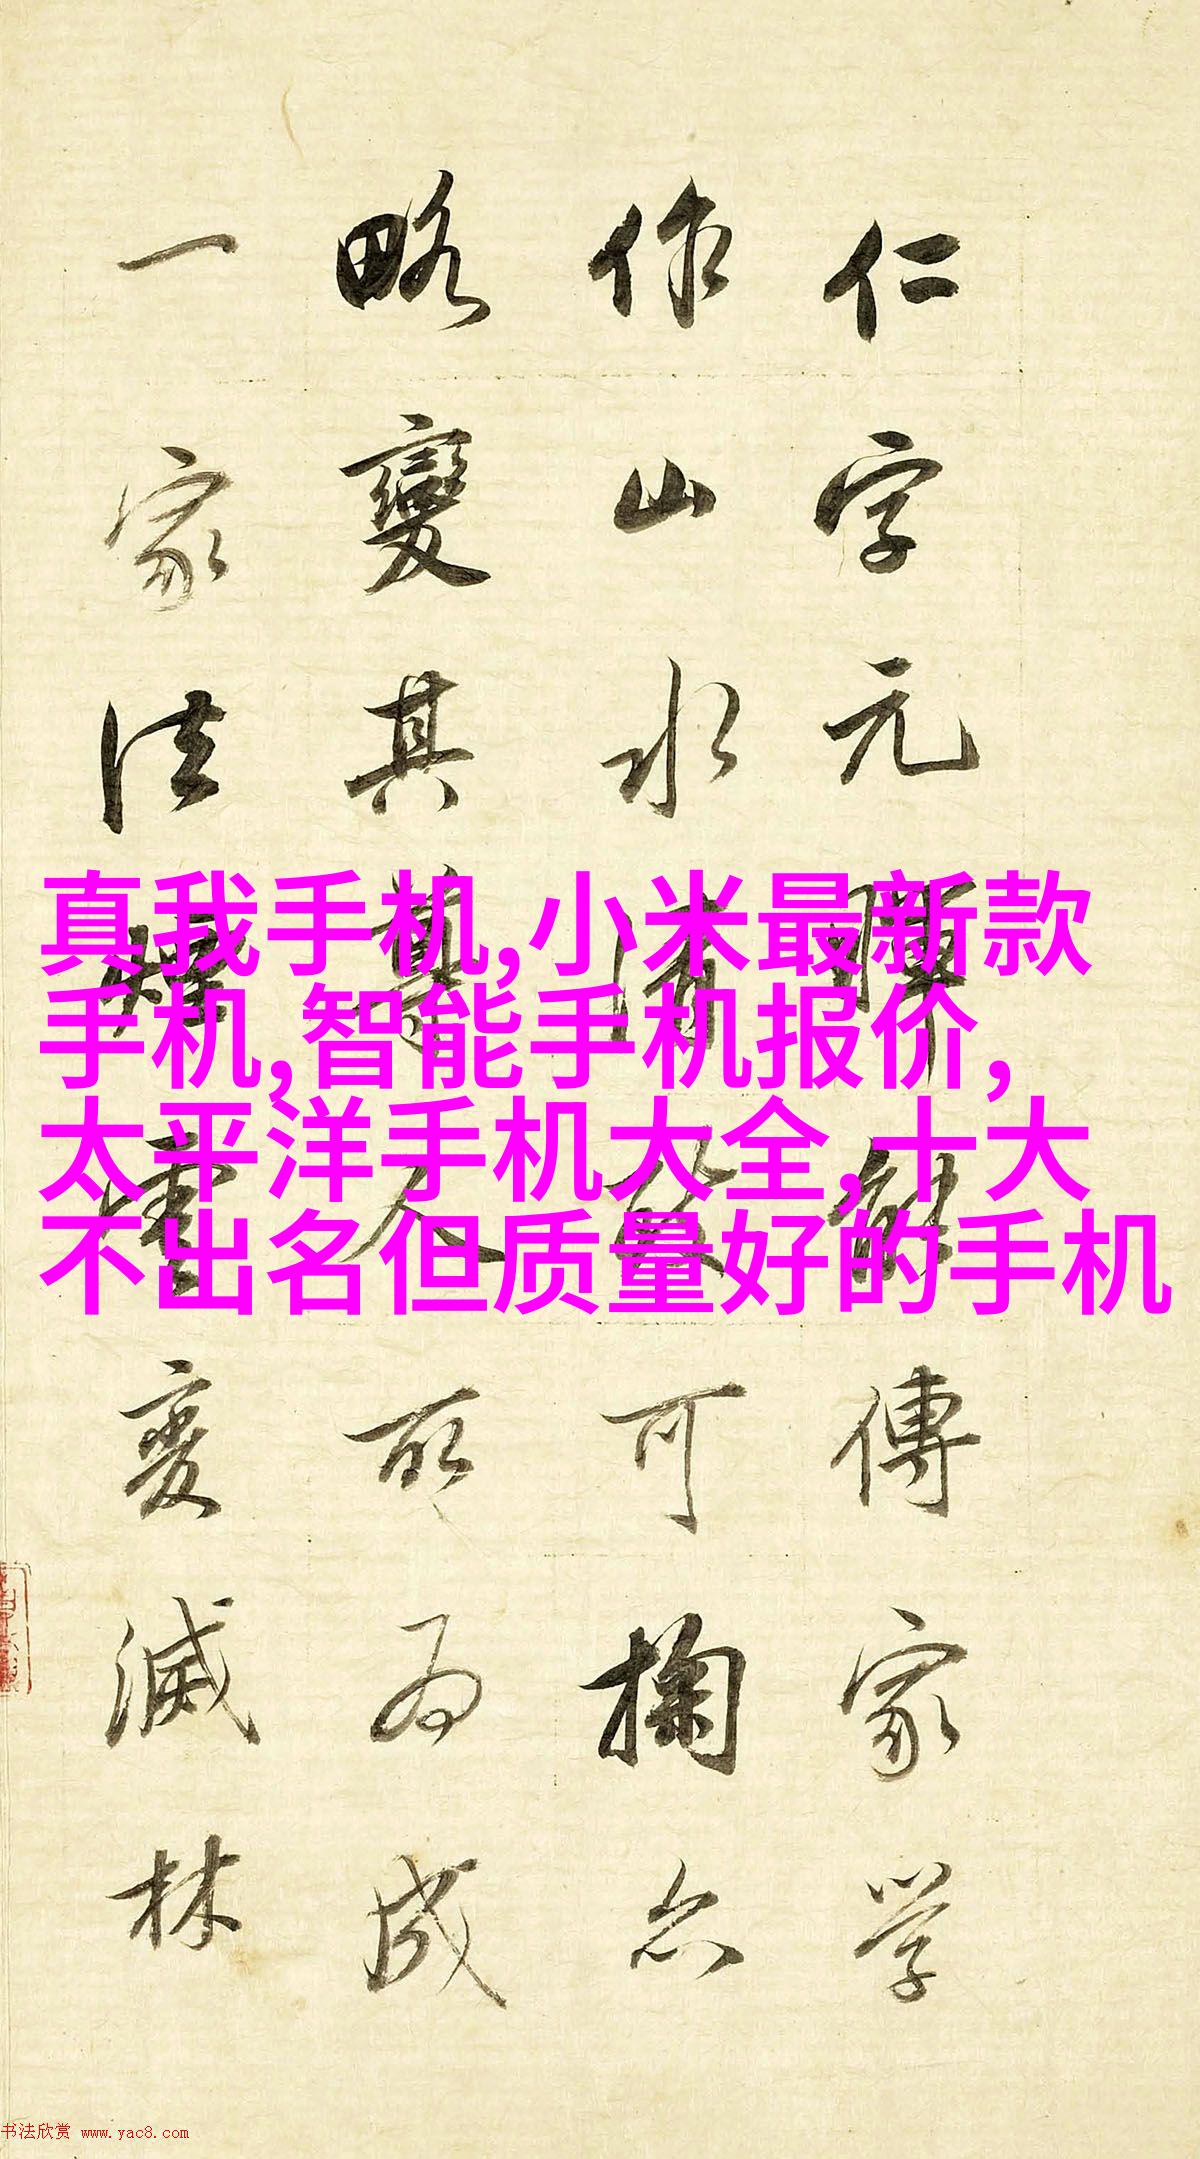 仁字元
傳家學
作山水清
可掬
略變其
人所为成
一家法
變滅林
真我手机,小米最新款
手机,智能手机报价,
太平洋手机大全,十大
不出名但质量好的手机
书法欣赏 www.yac8.com